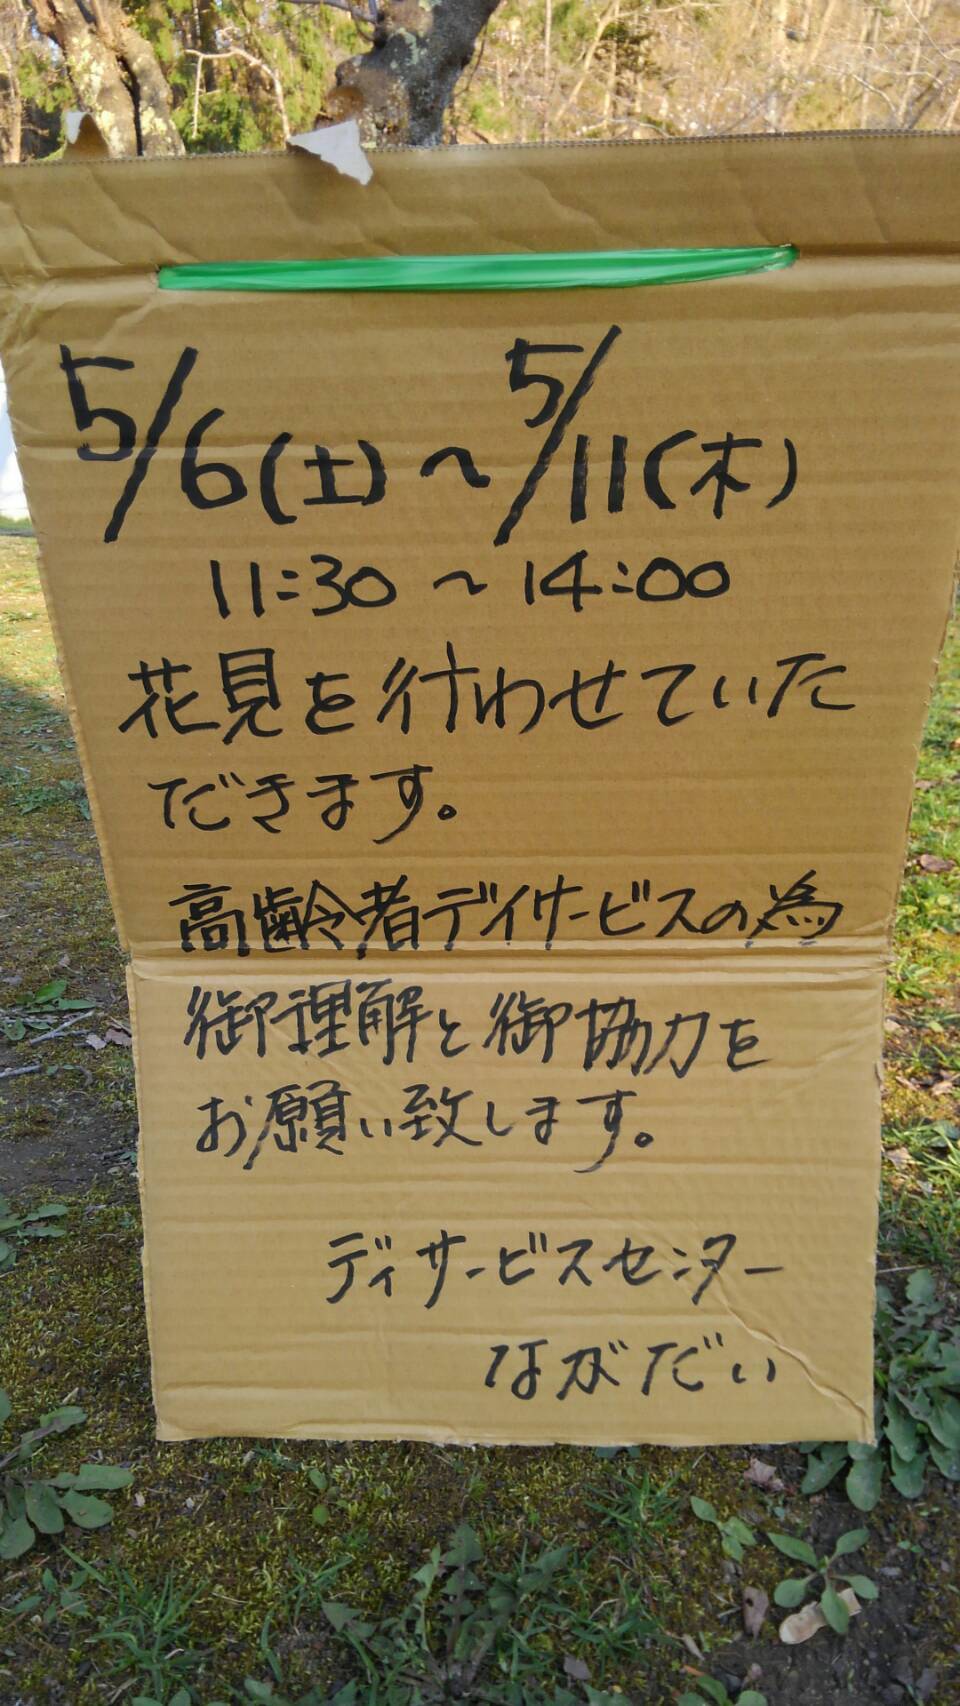 5/6(土)~5/11(木)
11:30~14:00
花見を行わせていた
だきます。
高齢者デイサービスの為
御理解と御協力を
お願い致します。
ディサービスセンター
ながだい